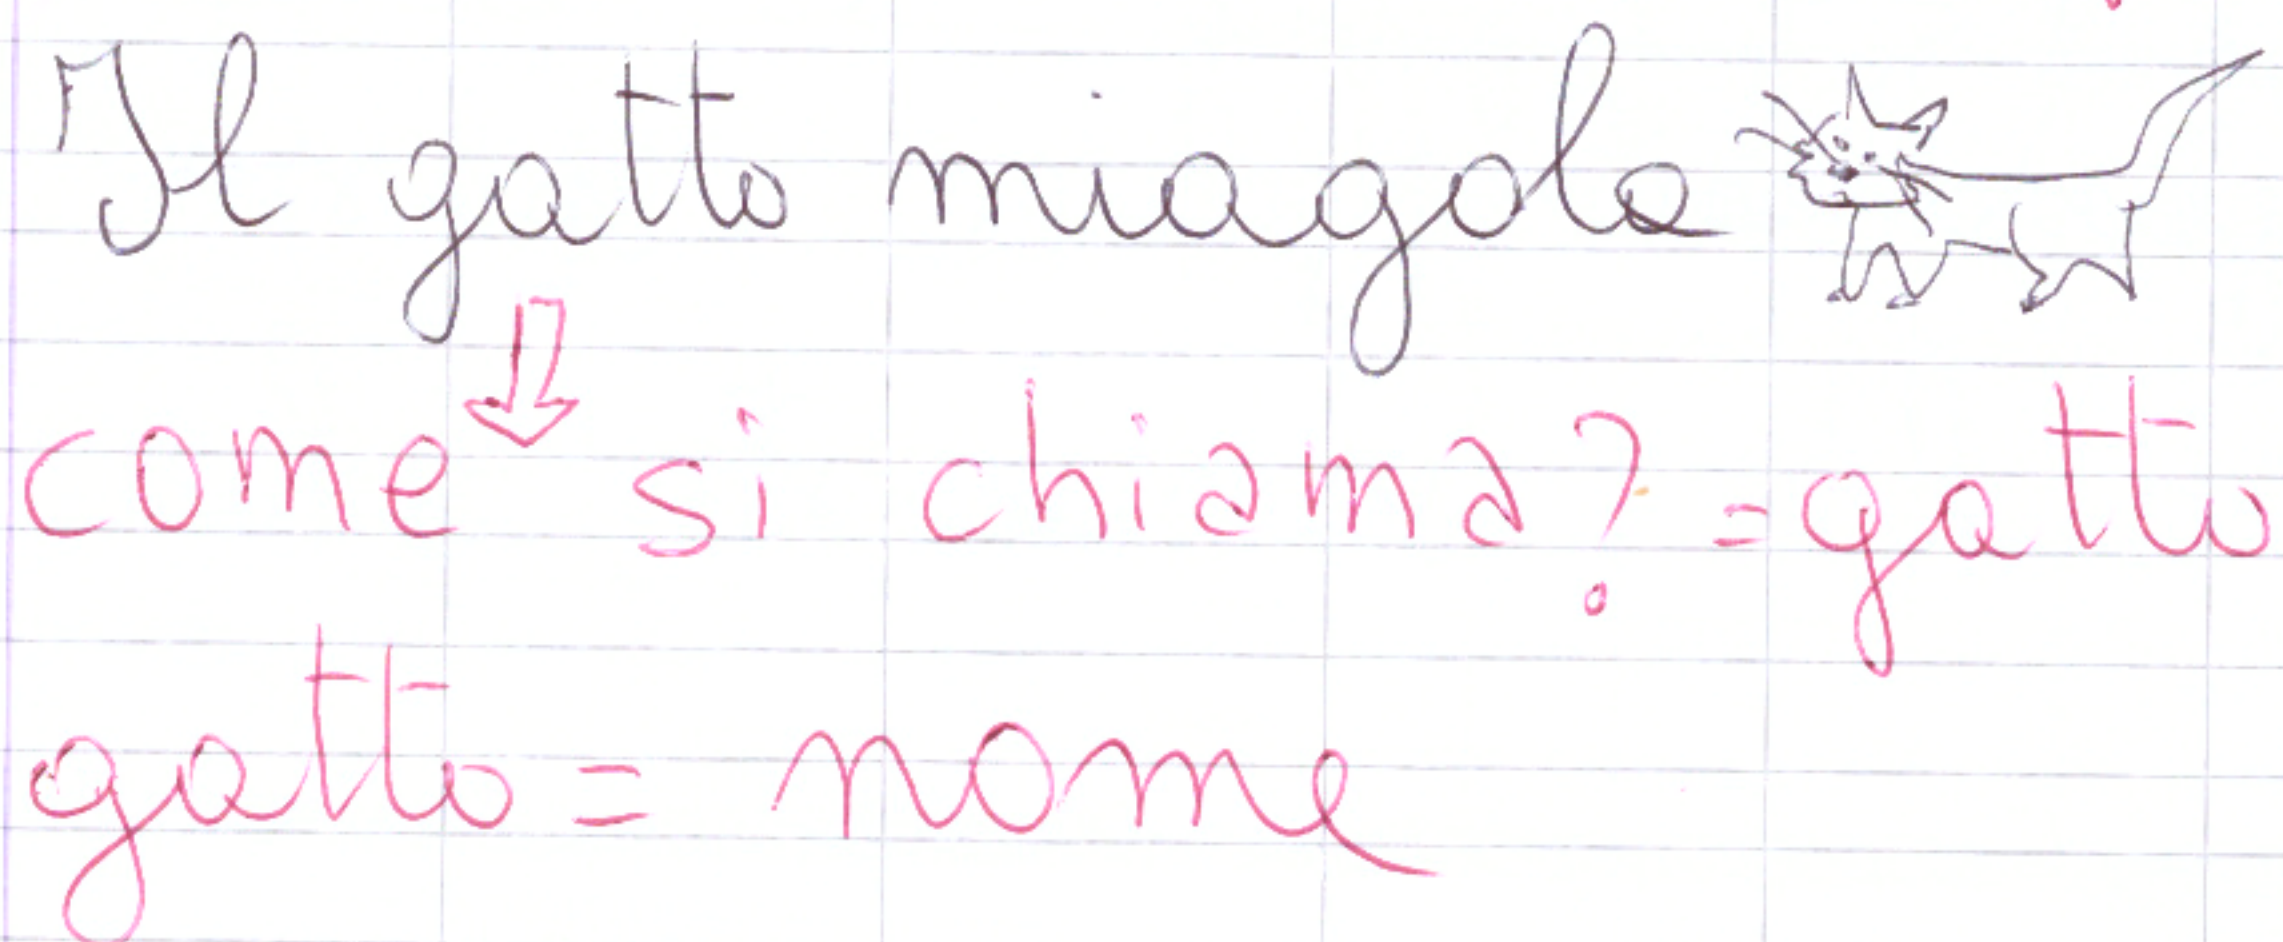 Il gatto miagola
come si chiama? = gatto
gatto = nome